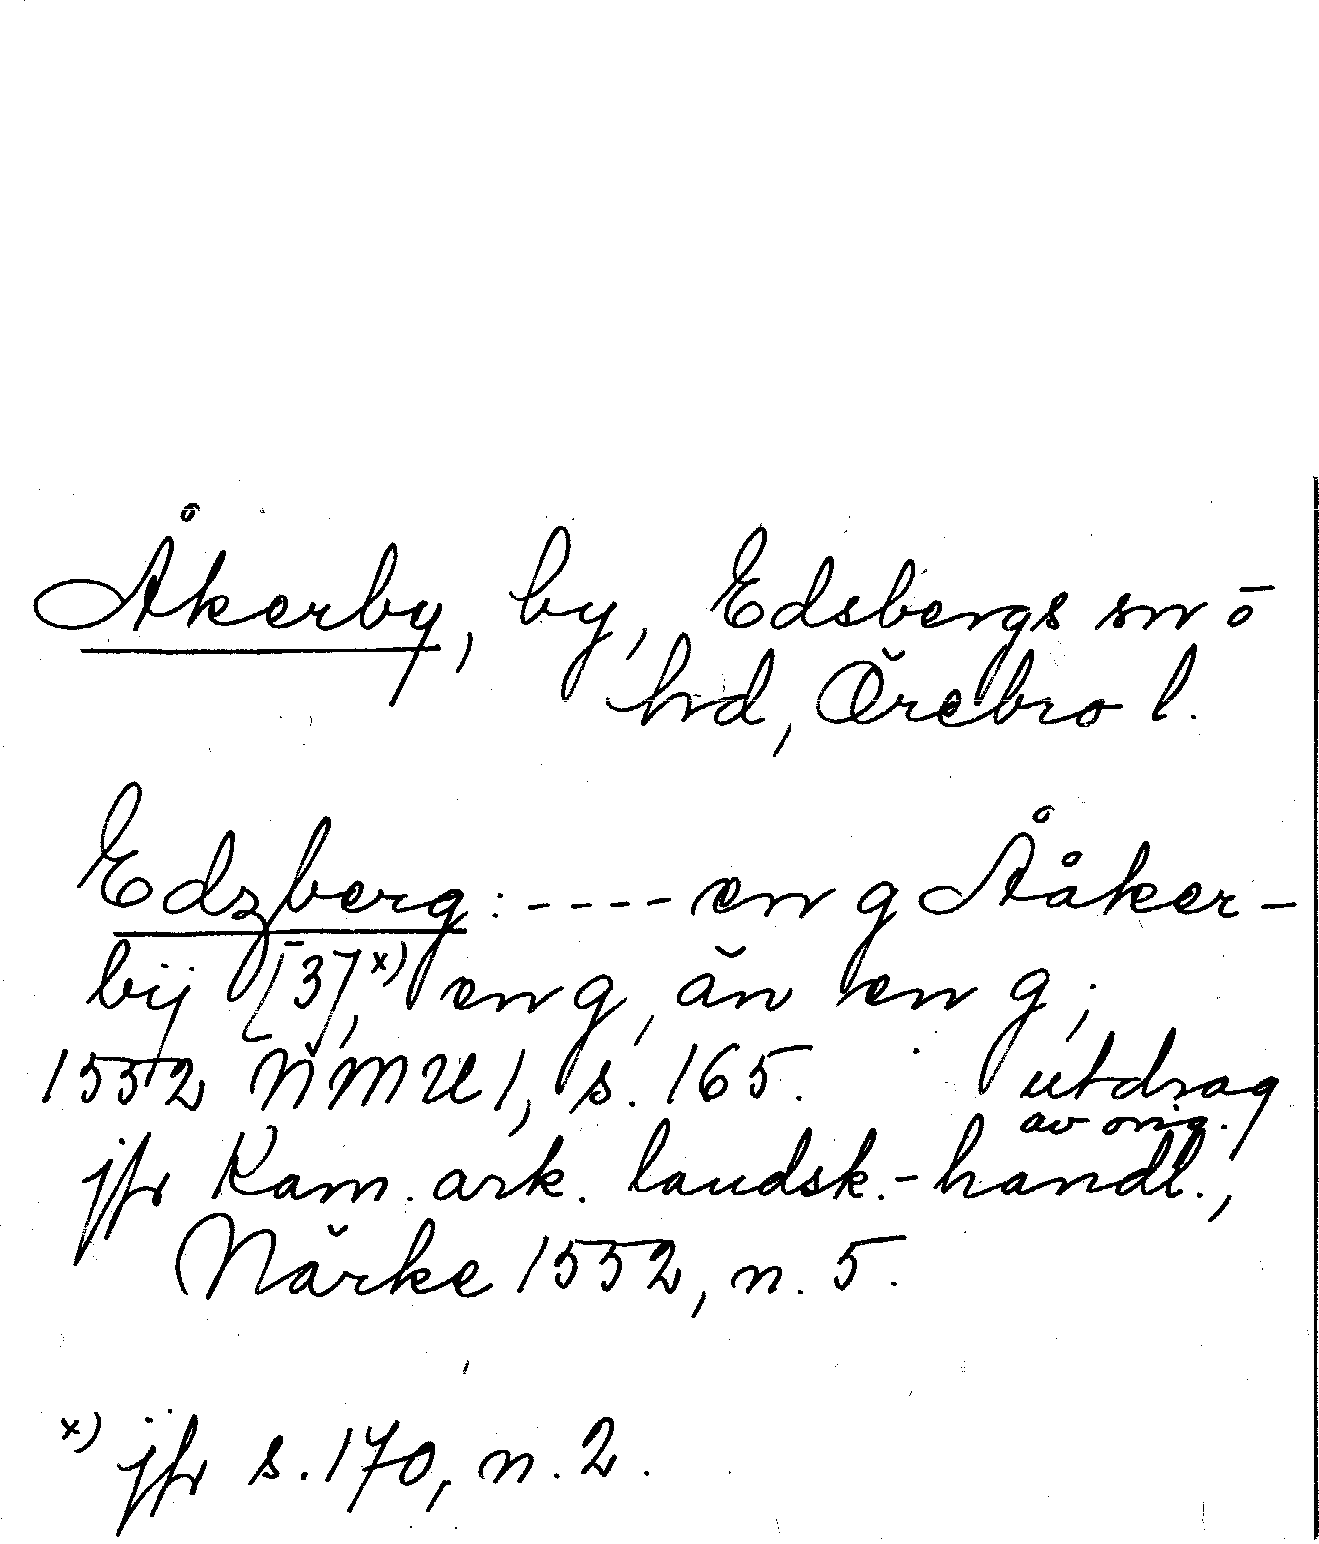 Åkerby, by, Edsbergs sn o
hd, Örebro l.
Edzberg: ---- en g Ååker-
bÿ [3],ˣ⁾ en g, än en g;
1552 NMU 1, s. 165. utdrag
av orig.
jfr Kam. ark. landsk.-handl.,
Närke 1552, n. 5.
ˣ⁾ jfr s. 170, n. 2.